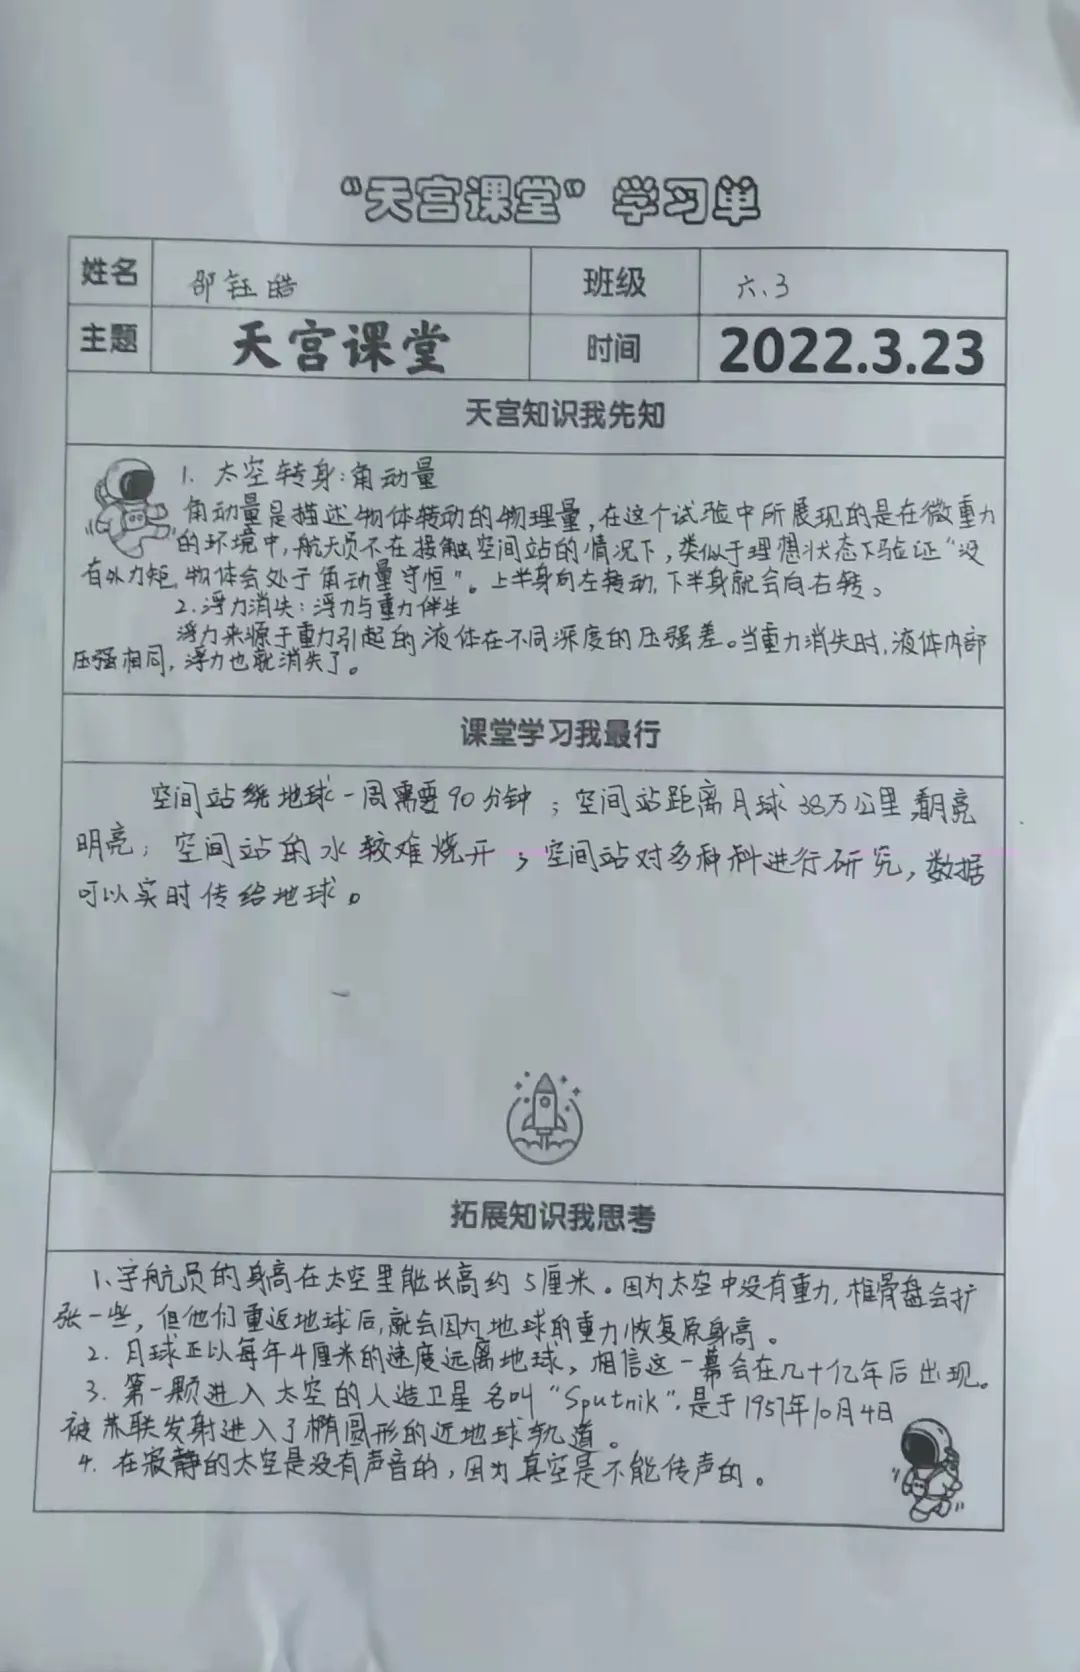 “天宫课堂”学习单
姓名 邵钰皓 班级 六.3
主题 天宫课堂 时间 2022.3.23
天宫知识我先知
1. 太空转身:角动量
角动量是描述物体转动的物理量,在这个试验中所展现的是在微重力
的环境中,航天员不在接触空间站的情况下,类似于理想状态下验证“没
有外力矩,物体会处于角动量守恒”。上半身向左转动,下半身就会向右转。
2.浮力消失:浮力与重力伴生
浮力来源于重力引起的液体在不同深度的压强差。当重力消失时,液体内部
压强相同,浮力也就消失了。
课堂学习我最行
空间站绕地球一周需要90分钟;空间站距离月球38万公里,看月亮
明亮;空间站的水较难烧开;空间站对多种科进行研究,数据
可以实时传给地球。
拓展知识我思考
1.宇航员的身高在太空里能长高约5厘米。因为太空中没有重力,椎骨盘会扩
张一些,但他们重返地球后,就会因为地球的重力恢复原身高。
2.月球正以每年4厘米的速度远离地球,相信这一幕会在几十亿年后出现。
3.第一颗进入太空的人造卫星名叫“Sputnik”.是于1957年10月4日
被苏联发射进入了椭圆形的近地球轨道。
4.在寂静的太空是没有声音的,因为真空是不能传声的。